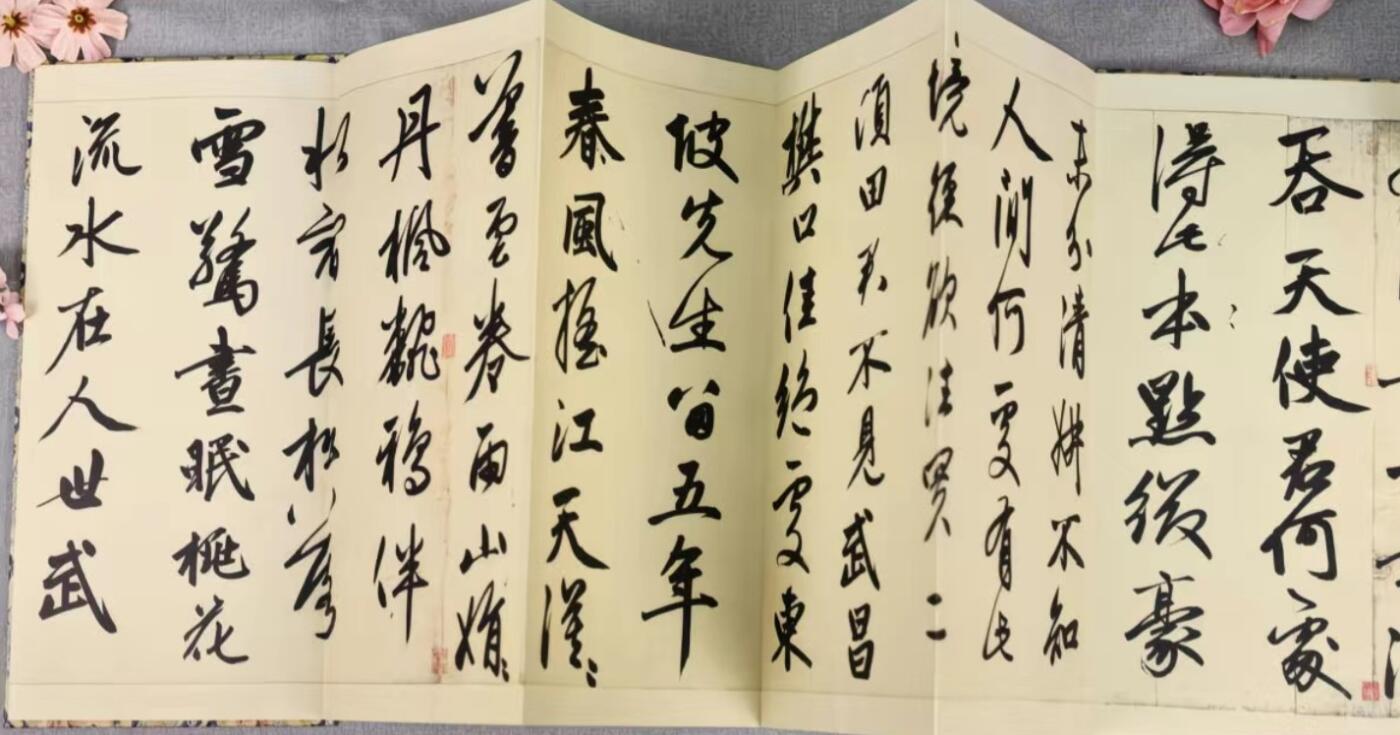 吞天使君何處
得此本點綴豪
末分清妍不知
人間何處有此
境徑欲往買二
頃田君不見武昌
樊口佳絕處東
坡先生留五年
春風搖江天漠漠
暮雲卷雨山娟娟
丹楓翻鴉伴
水宿長松落
雪驚晝眠桃花
流水在人世武